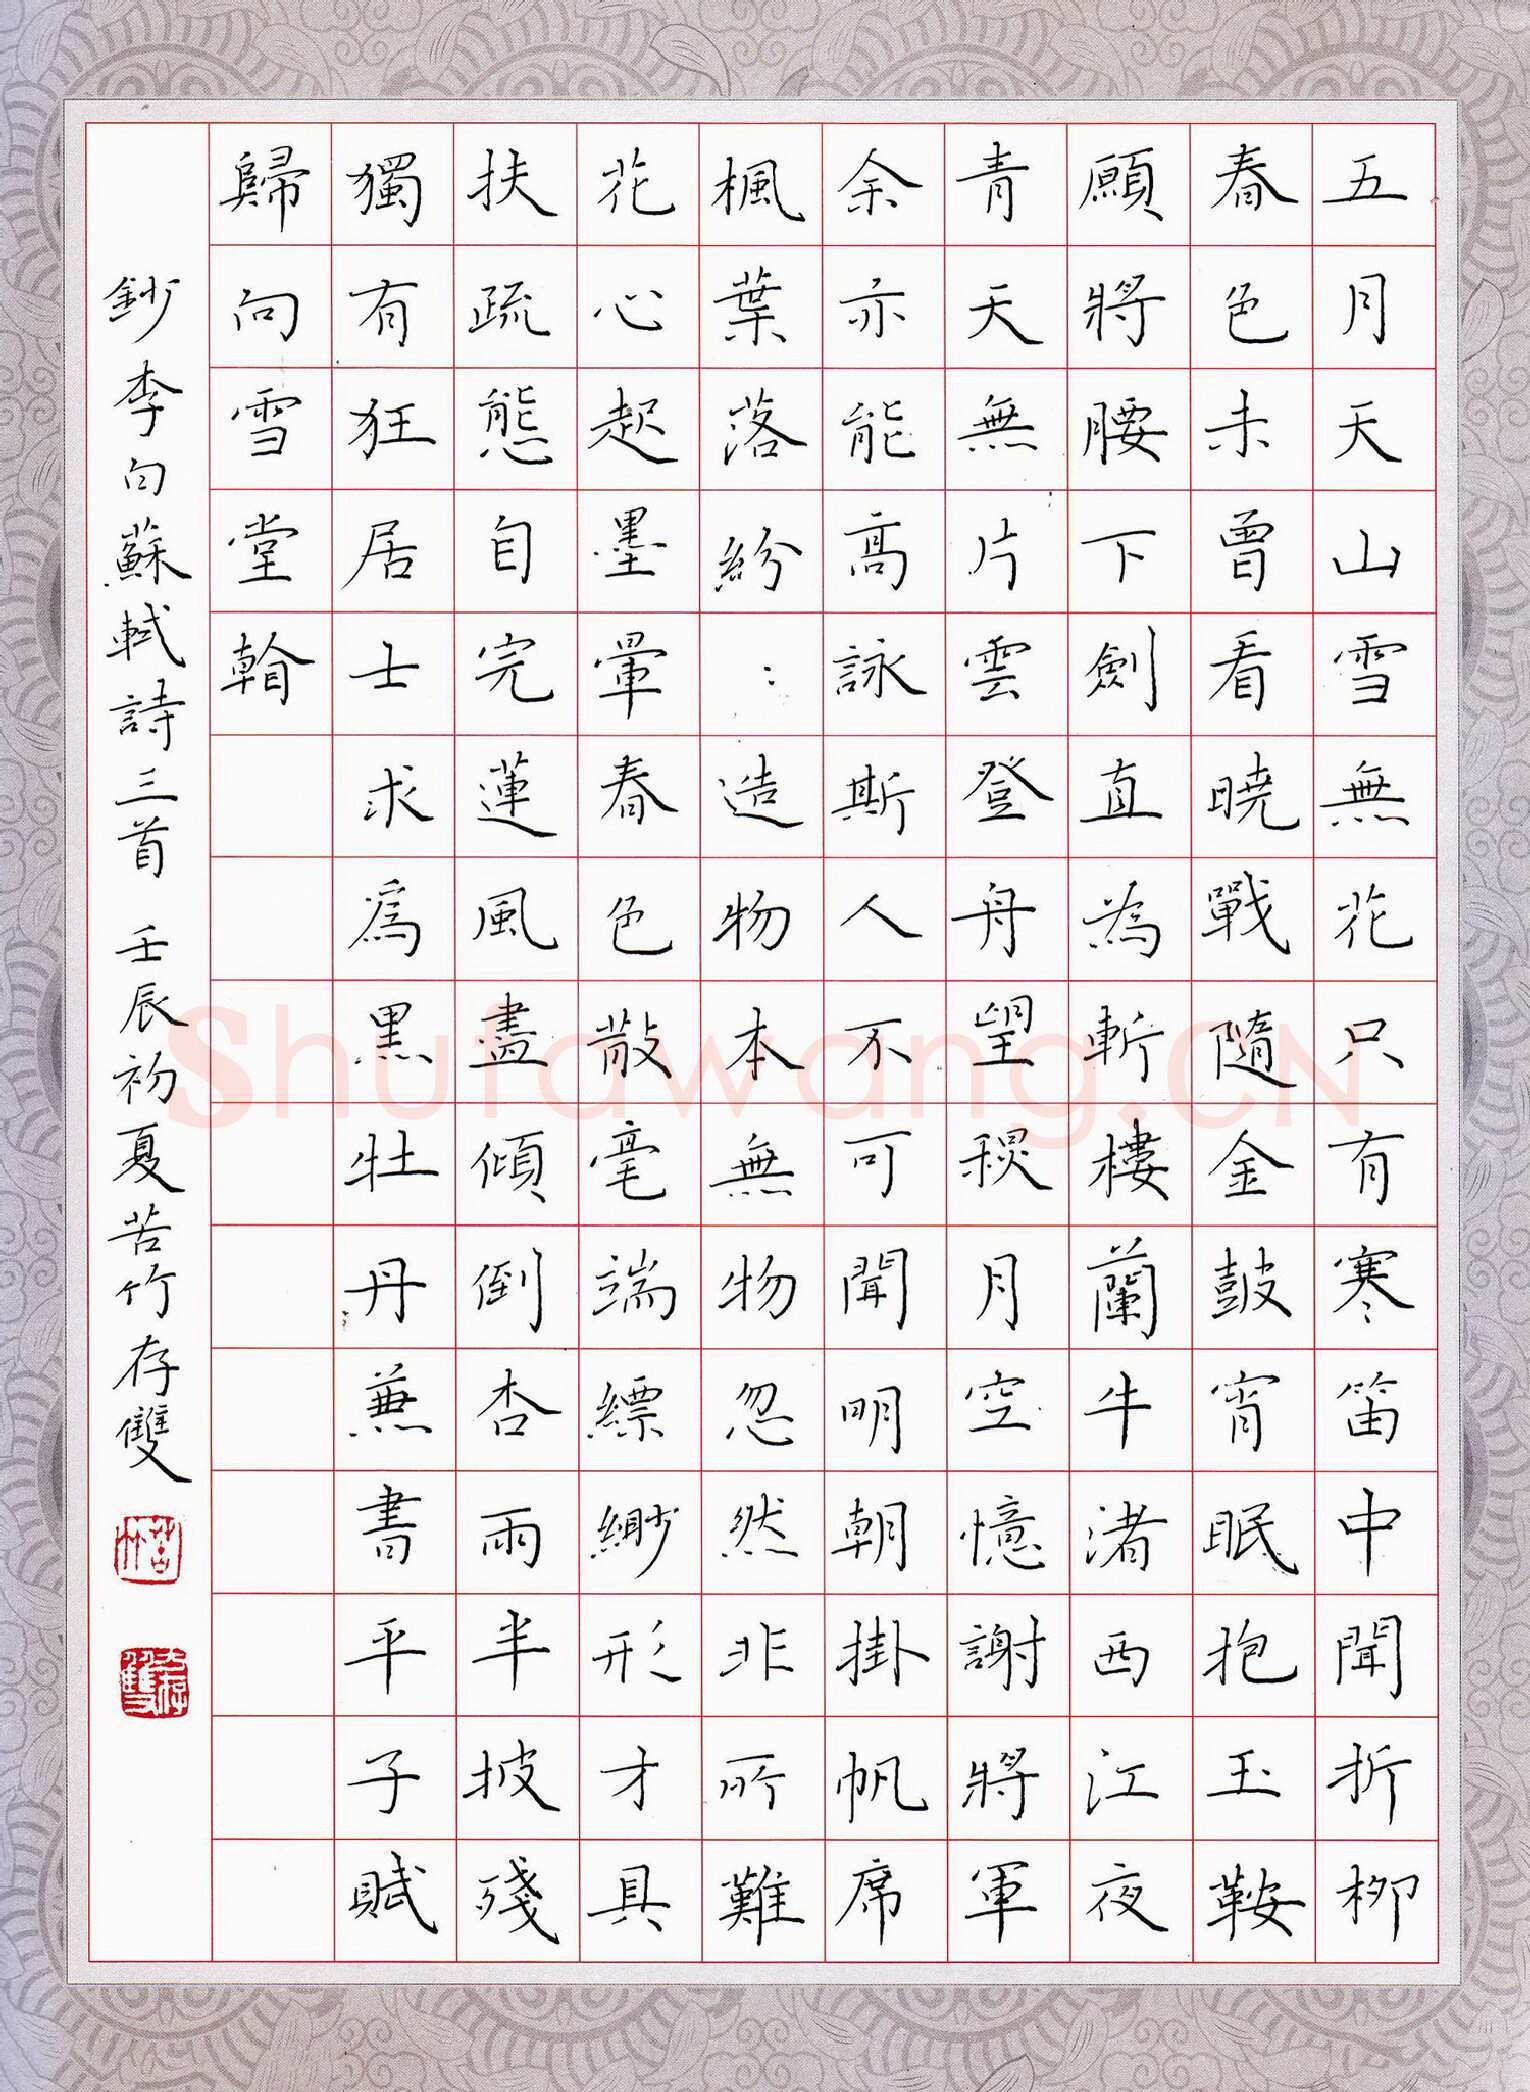 五月天山雪無花只有寒笛中聞折柳
春色未曾看曉戰隨金鼓宵眠抱玉鞍
願將腰下劍直為斬樓蘭牛渚西江夜
青天無片雲登舟望秋月空憶謝將軍
余亦能高詠斯人不可聞明朝掛帆席
楓葉落紛：造物本無物忽然非所難
花心起墨暈春色散毫端縹緲形才具
扶疏態自完蓮風盡傾倒杏雨半披殘
獨有狂居士求爲黑牡丹蒹書平子賦
歸向雪堂看
鈔李白蘇軾詩三首 壬辰初夏苦竹存雙
苦竹
存雙
Shufawang.CN